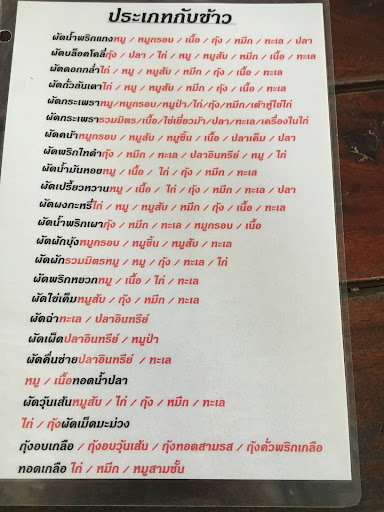 ประเภทกับข้าว
ผัดน้ำพริกแกงหมู / หมูกรอบ / เนื้อ / กุ้ง / หมึก / ทะเล / ปลา
ผัดบล็อคโคลี่กุ้ง / ปลา / ไก่ / หมู / หมูสับ / หมึก / เนื้อ / ทะเล
ผัดดอกกล่ำไก่ / หมู / หมูสับ / หมึก / กุ้ง / เนื้อ / ทะเล
ผัดถั่วลันเตาไก่ / หมู / หมูสับ / หมึก / กุ้ง / เนื้อ / ทะเล
ผัดกระเพราหมู/หมูกรอบ/หมูป่า/ไก่/กุ้ง/หมึก/เต้าหู้ไข่ไก่
ผัดกระเพรารวมมิตร/เนื้อ/ไข่เยี่ยวม้า/ปลา/ทะเล/เครื่องในไก่
ผัดคน้าหมูกรอบ / หมูสับ / หมูชิ้น / เนื้อ / ปลาเค็ม / ปลา
ผัดพริกไทดำกุ้ง / หมึก / ทะเล / ปลาอินทรีย์ / หมู / ไก่
ผัดน้ำมันหอยหมู / เนื้อ / ไก่ / กุ้ง / หมึก / ทะเล
ผัดเปรี้ยวหวานหมู / เนื้อ / ไก่ / กุ้ง / หมึก / ทะเล / ปลา
ผัดผงกะหรี่ไก่ / หมู / หมูสับ / หมึก / กุ้ง / เนื้อ / ทะเล
ผัดน้ำพริกเผากุ้ง / หมึก / ทะเล / หมูกรอบ / เนื้อ
ผัดผักบุ้งหมูกรอบ / หมูชิ้น / หมูสับ / ทะเล
ผัดผักรวมมิตรหมู / หมู / กุ้ง / ทะเล / ไก่
ผัดพริกหยวกหมู / เนื้อ / ไก่ / ทะเล
ผัดไข่เค็มหมูสับ / กุ้ง / หมึก / ทะเล
ผัดฉ่าทะเล / ปลาอินทรีย์
ผัดเผ็ดปลาอินทรีย์ / หมูป่า
ผัดคื่นช่ายปลาอินทรีย์ / ทะเล
หมู / เนื้อทอดน้ำปลา
ผัดวุ้นเส้นหมูสับ / ไก่ / กุ้ง / หมึก / ทะเล
ไก่ / กุ้งผัดเม็ดมะม่วง
กุ้งอบเกลือ / กุ้งอบวุ้นเส้น / กุ้งทอดสามรส / กุ้งคั่วพริกเกลือ
ทอดเกลือ ไก่ / หมึก / หมูสามชั้น